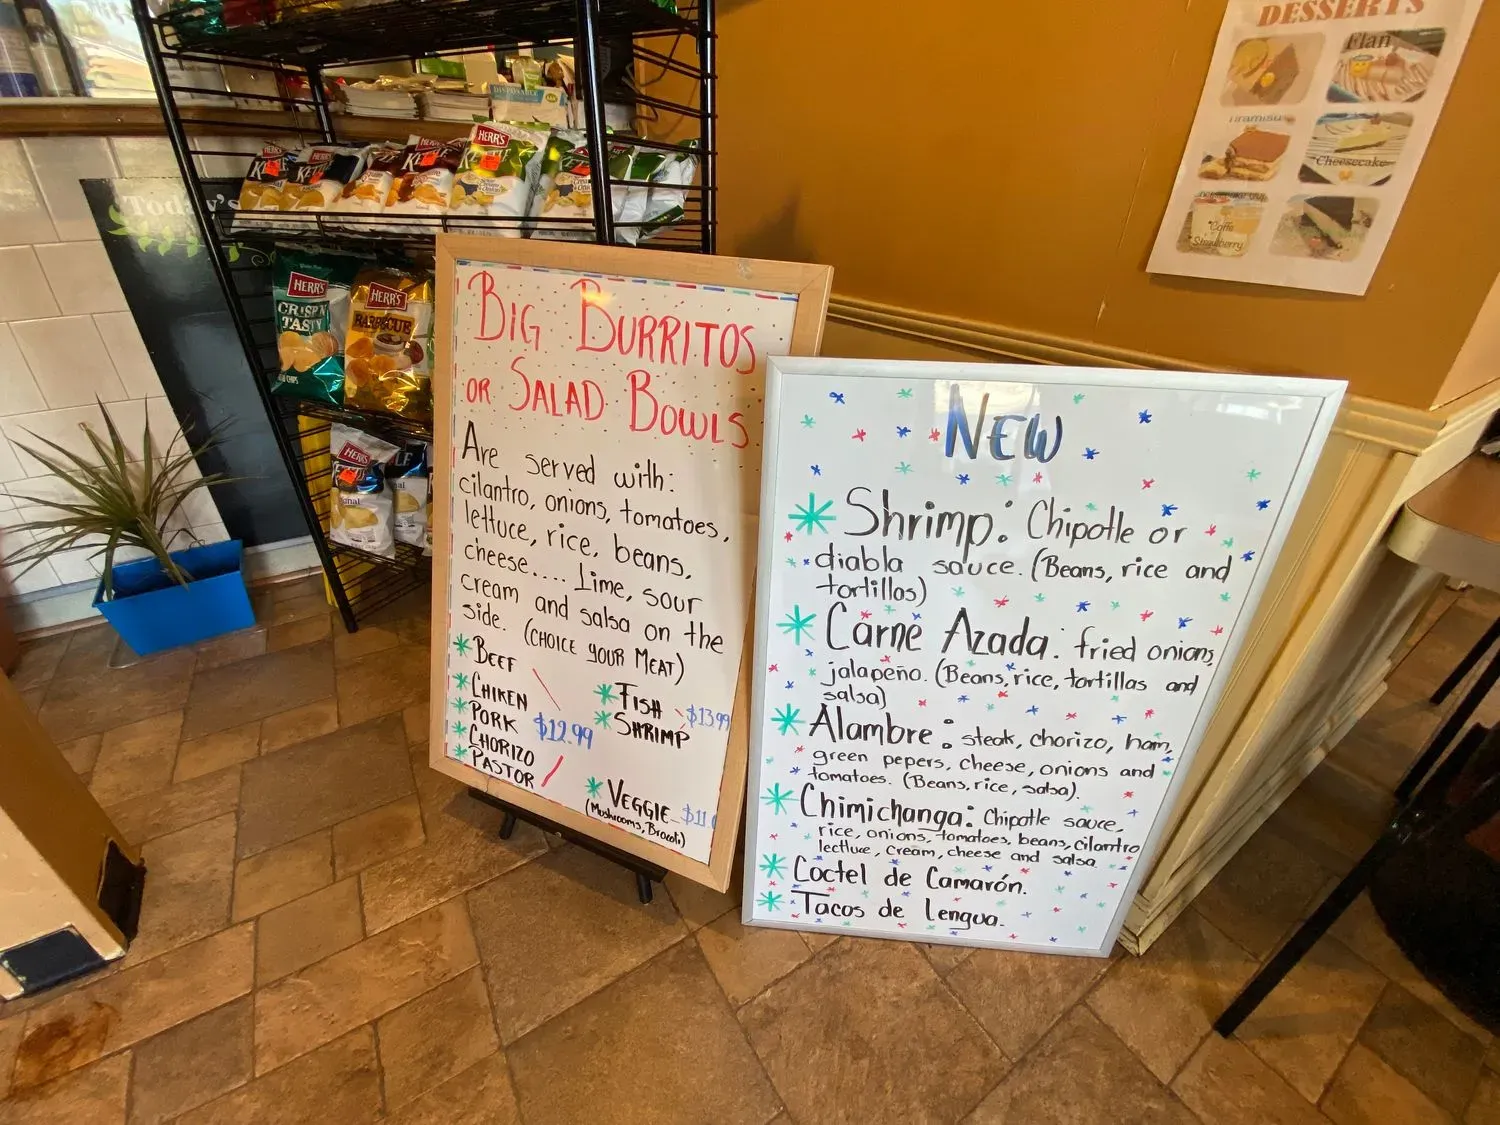 DESSERTS
Flan
Tiramisu
Cheesecake
Coffe
Strawberry
Today's
HERR'S
HERR'S
HERR'S
HERR'S
KETTLE
HERR'S
CRISP N
TASTY
HERR'S
BARBECUE
HERR'S
BIG BURRITOS
OR SALAD BOWLS
Are served with:
cilantro, onions, tomatoes,
lettuce, rice, beans,
cheese.... Lime, sour
cream and salsa on the
side. (CHOICE YOUR MEAT)
* BEEF
* CHIKEN
* PORK $12.99
* CHORIZO
* PASTOR
* FISH
* SHRIMP $13.99
* VEGGIE $11
(Mushrooms, Brocoli)
NEW
* Shrimp: Chipotle or
diabla sauce. (Beans, rice and
tortillas)
* Carne Azada: fried onions,
jalapeño. (Beans, rice, tortillas and
salsa)
* Alambre: steak, chorizo, ham,
green pepers, cheese, onions and
tomatoes. (Beans, rice, salsa).
* Chimichanga: Chipotle sauce,
rice, onions, tomatoes, beans, cilantro
lectlure, cream, cheese and salsa
* Coctel de Camarón.
* Tacos de Lengua.